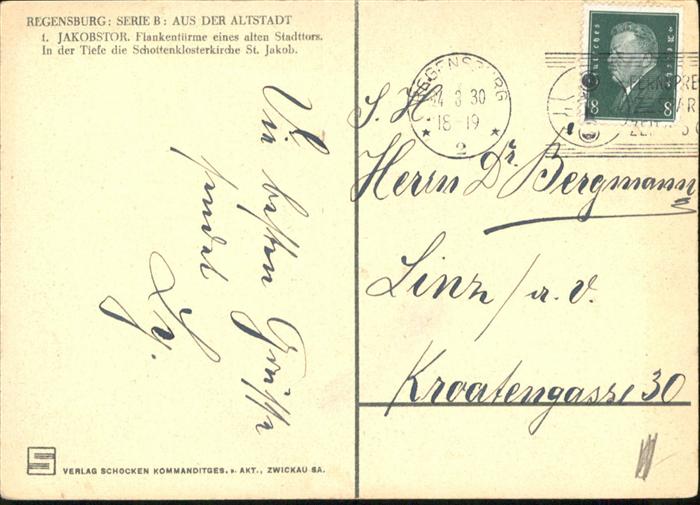 REGENSBURG: SERIE B: AUS DER ALTSTADT
1. JAKOBSTOR. Flankentürme eines alten Stadttors.
In der Tiefe die Schottenklosterkirche St. Jakob.
Die besten Grüsse
sendet
REGENSBURG
24 8 30
18-19
2
Deutsches Reich
8 8
FERNSPRE
S. H.
Herrn Dr. Bergmann
Linz / a. D.
Kroatengasse 30
S
VERLAG SCHOCKEN KOMMANDITGES. a. AKT., ZWICKAU SA.